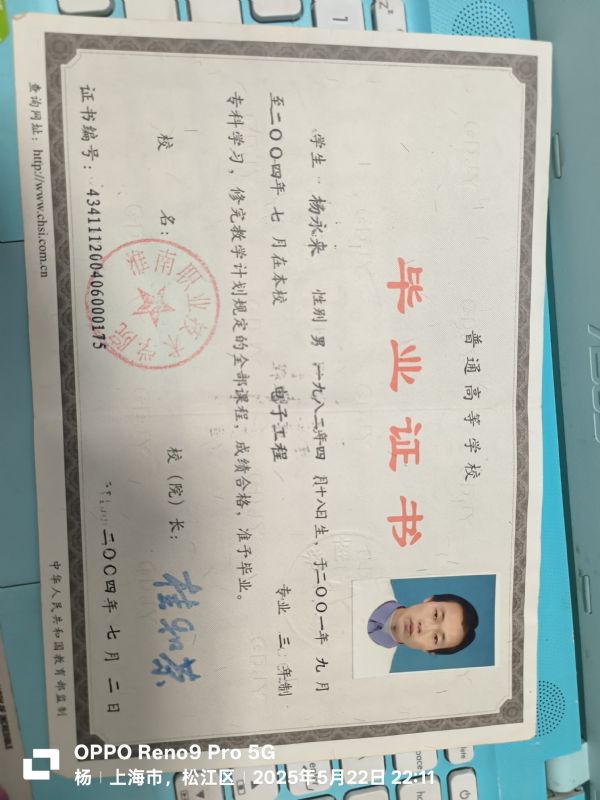 普通高等学校
毕业证书
学生 杨永来 性别 男 一九八二年四月十八日生,于二〇〇一年九月
至二〇〇四年七月在本校 电子工程 专业 三年制
专科学习,修完教学计划规定的全部课程,成绩合格,准予毕业。
校 名: 校(院)长:
淮南职业技术学院
证书编号:434111200406000175
二〇〇四年七月二日
查询网址:http://www.chsi.com.cn
中华人民共和国教育部监制
OPPO Reno9 Pro 5G
杨 | 上海市,松江区 | 2025年5月22日 22:11